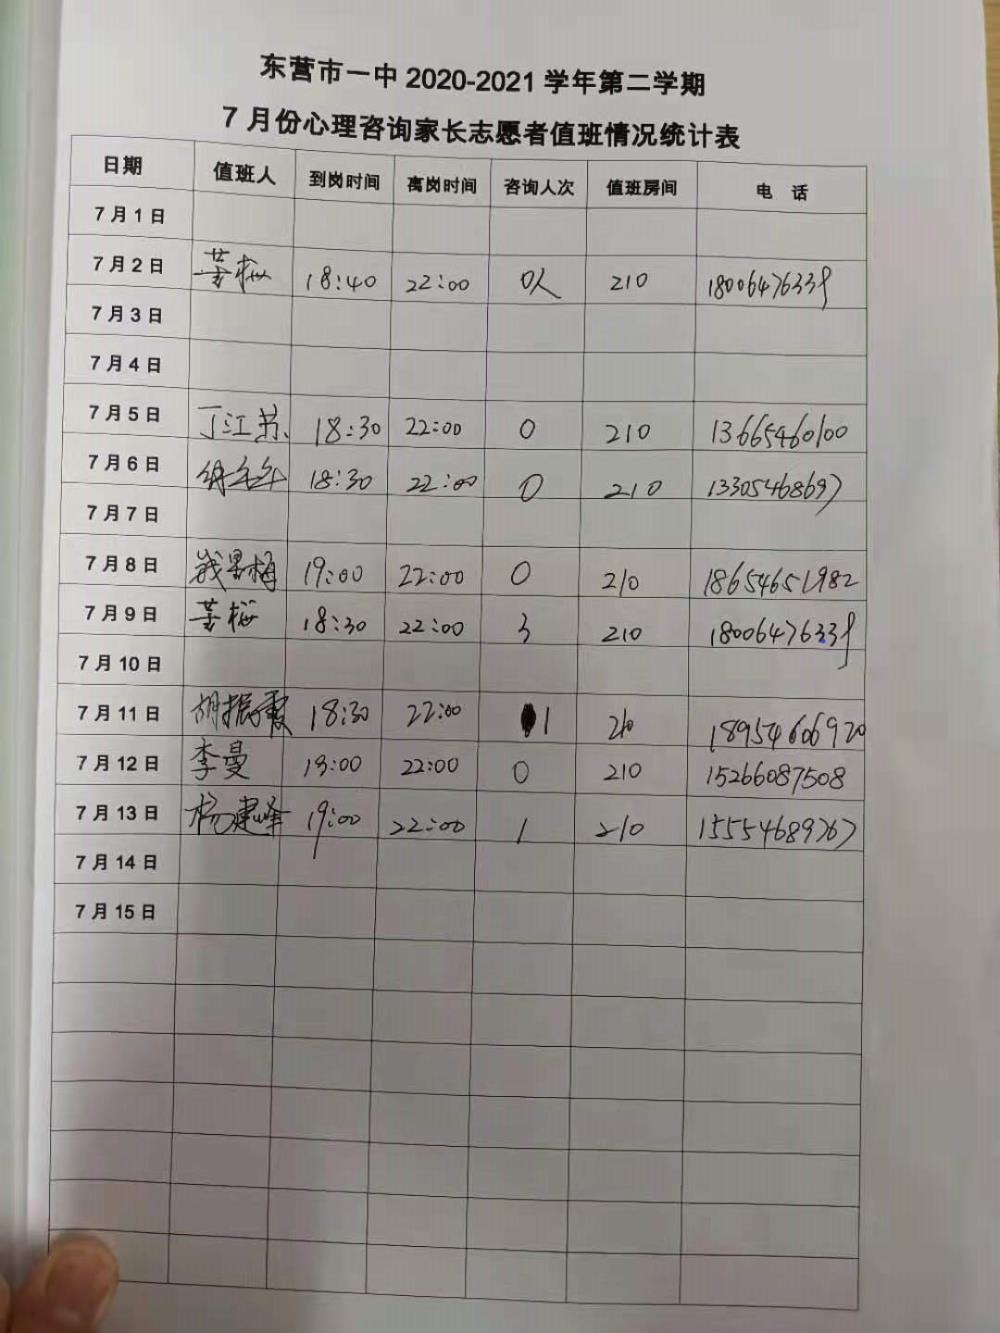 东营市一中 2020-2021 学年第二学期
7 月份心理咨询家长志愿者值班情况统计表
日期 值班人 到岗时间 离岗时间 咨询人次 值班房间 电 话
7 月 1 日
7 月 2 日 18:40 22:00 0人 210 18006476339
7 月 3 日
7 月 4 日
7 月 5 日 丁江苏 18:30 22:00 0 210 13665460100
7 月 6 日 18:30 22:00 0 210 13305468697
7 月 7 日
7 月 8 日 19:00 22:00 0 210 18654651982
7 月 9 日 18:30 22:00 3 210 18006476339
7 月 10 日
7 月 11 日 胡振霞 18:30 22:00 1 210 18954606920
7 月 12 日 李曼 19:00 22:00 0 210 15266087508
7 月 13 日 杨建峰 19:00 22:00 1 210 15554689767
7 月 14 日
7 月 15 日